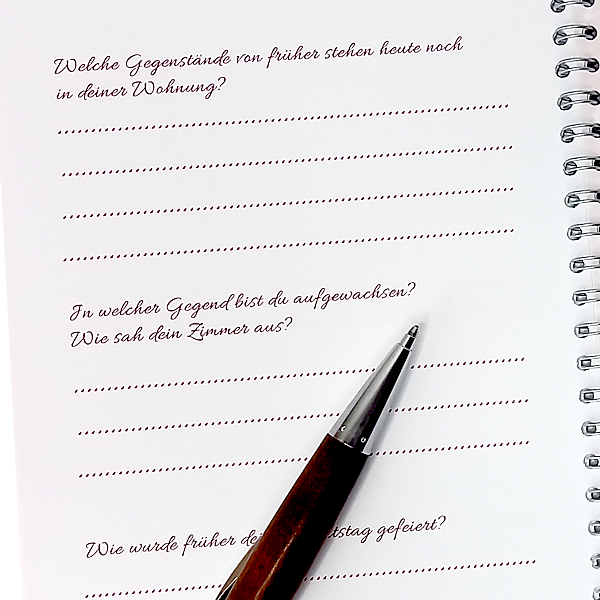 Welche Gegenstände von früher stehen heute noch
in deiner Wohnung?
In welcher Gegend bist du aufgewachsen?
Wie sah dein Zimmer aus?
Wie wurde früher gefeiert?